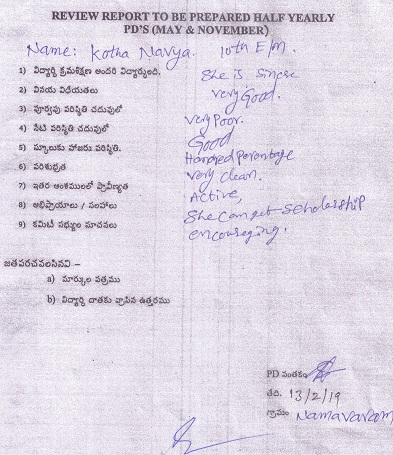 REVIEW REPORT TO BE PREPARED HALF YEARLY
PD'S (MAY & NOVEMBER)
Name: Kotha Navya. 10th E/m.
1) విద్యార్థి క్రమశిక్షణ అందరి విద్యార్థులది. She is Sincere
2) వినయ విధేయతలు very Good.
3) పూర్వపు పరిస్థితి చదువులో very Poor.
4) నేటి పరిస్థితి చదువులో Good
5) స్కూలుకు హాజరు పరిస్థితి. Hundred Percentage
6) పరిశుభ్రత very clean.
7) ఇతర అంశములలో ప్రావీణ్యత Active,
8) అభిప్రాయాలు / సలహాలు She can get Scholarship
9) కమిటీ సభ్యుల సూచనలు encourging.
జతపరచవలసినవి –
a) మార్కుల పత్రము
b) విద్యార్థి దాతకు వ్రాసిన ఉత్తరము
PD సంతకం
తేది. 13/2/19
గ్రామం Namavaram